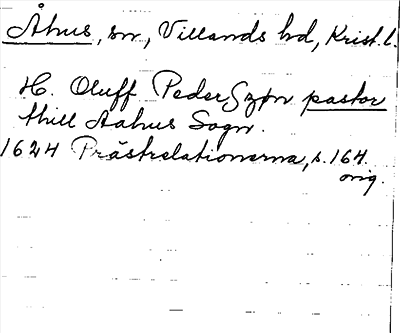 Åhus, sn, Villands hd, Krist. l.
H. Oluff PederSzøn pastor
thill Aahus Sogn.
1624 Prästrelationerna, s. 164.
orig.